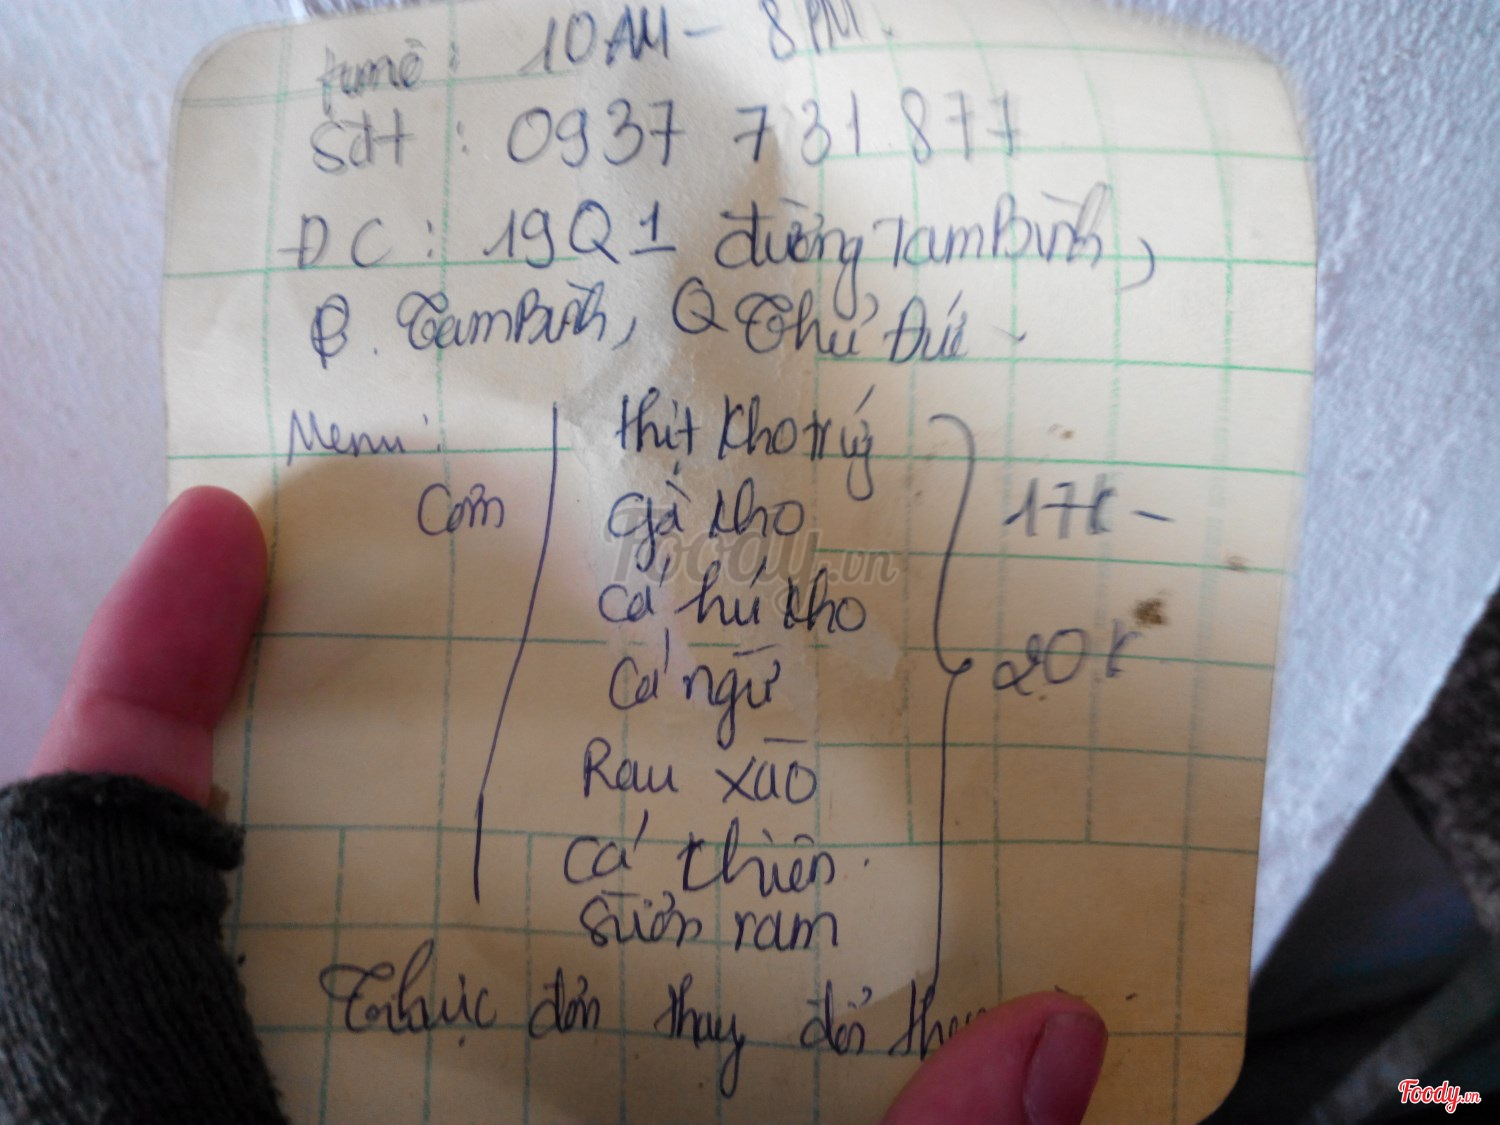 10AM - 8PM.
Sđt : 0937 731 877
ĐC : 19 Q1 đường Tam Bình,
P. Tam Bình, Q Thủ Đức -
Menu :
thịt kho trứ
Cơm
gà kho
17k -
cá hú kho
20k
cá ngừ
Rau xào
cá khiên.
Sườn ram
Thực đơn thay đổi
Foody.vn
Foody.vn